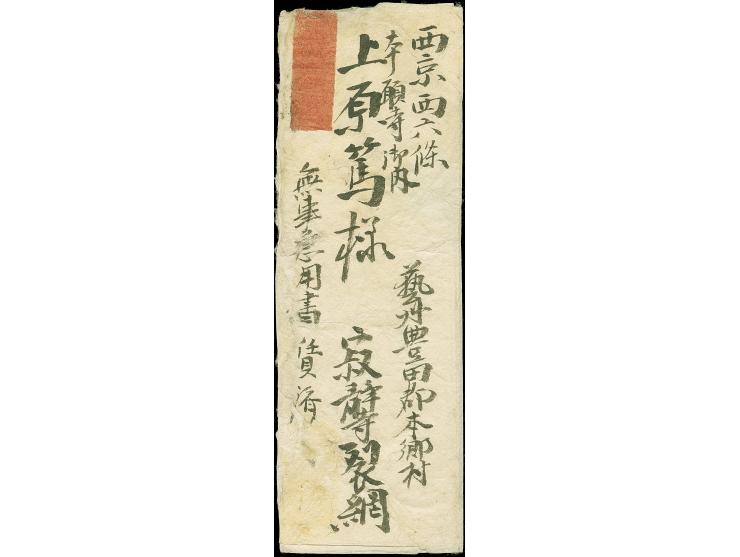 西京西六條
本願寺御内
上原篤様
藝州豊田郡本郷村
寂静寺裂網
無事急用書 賃済